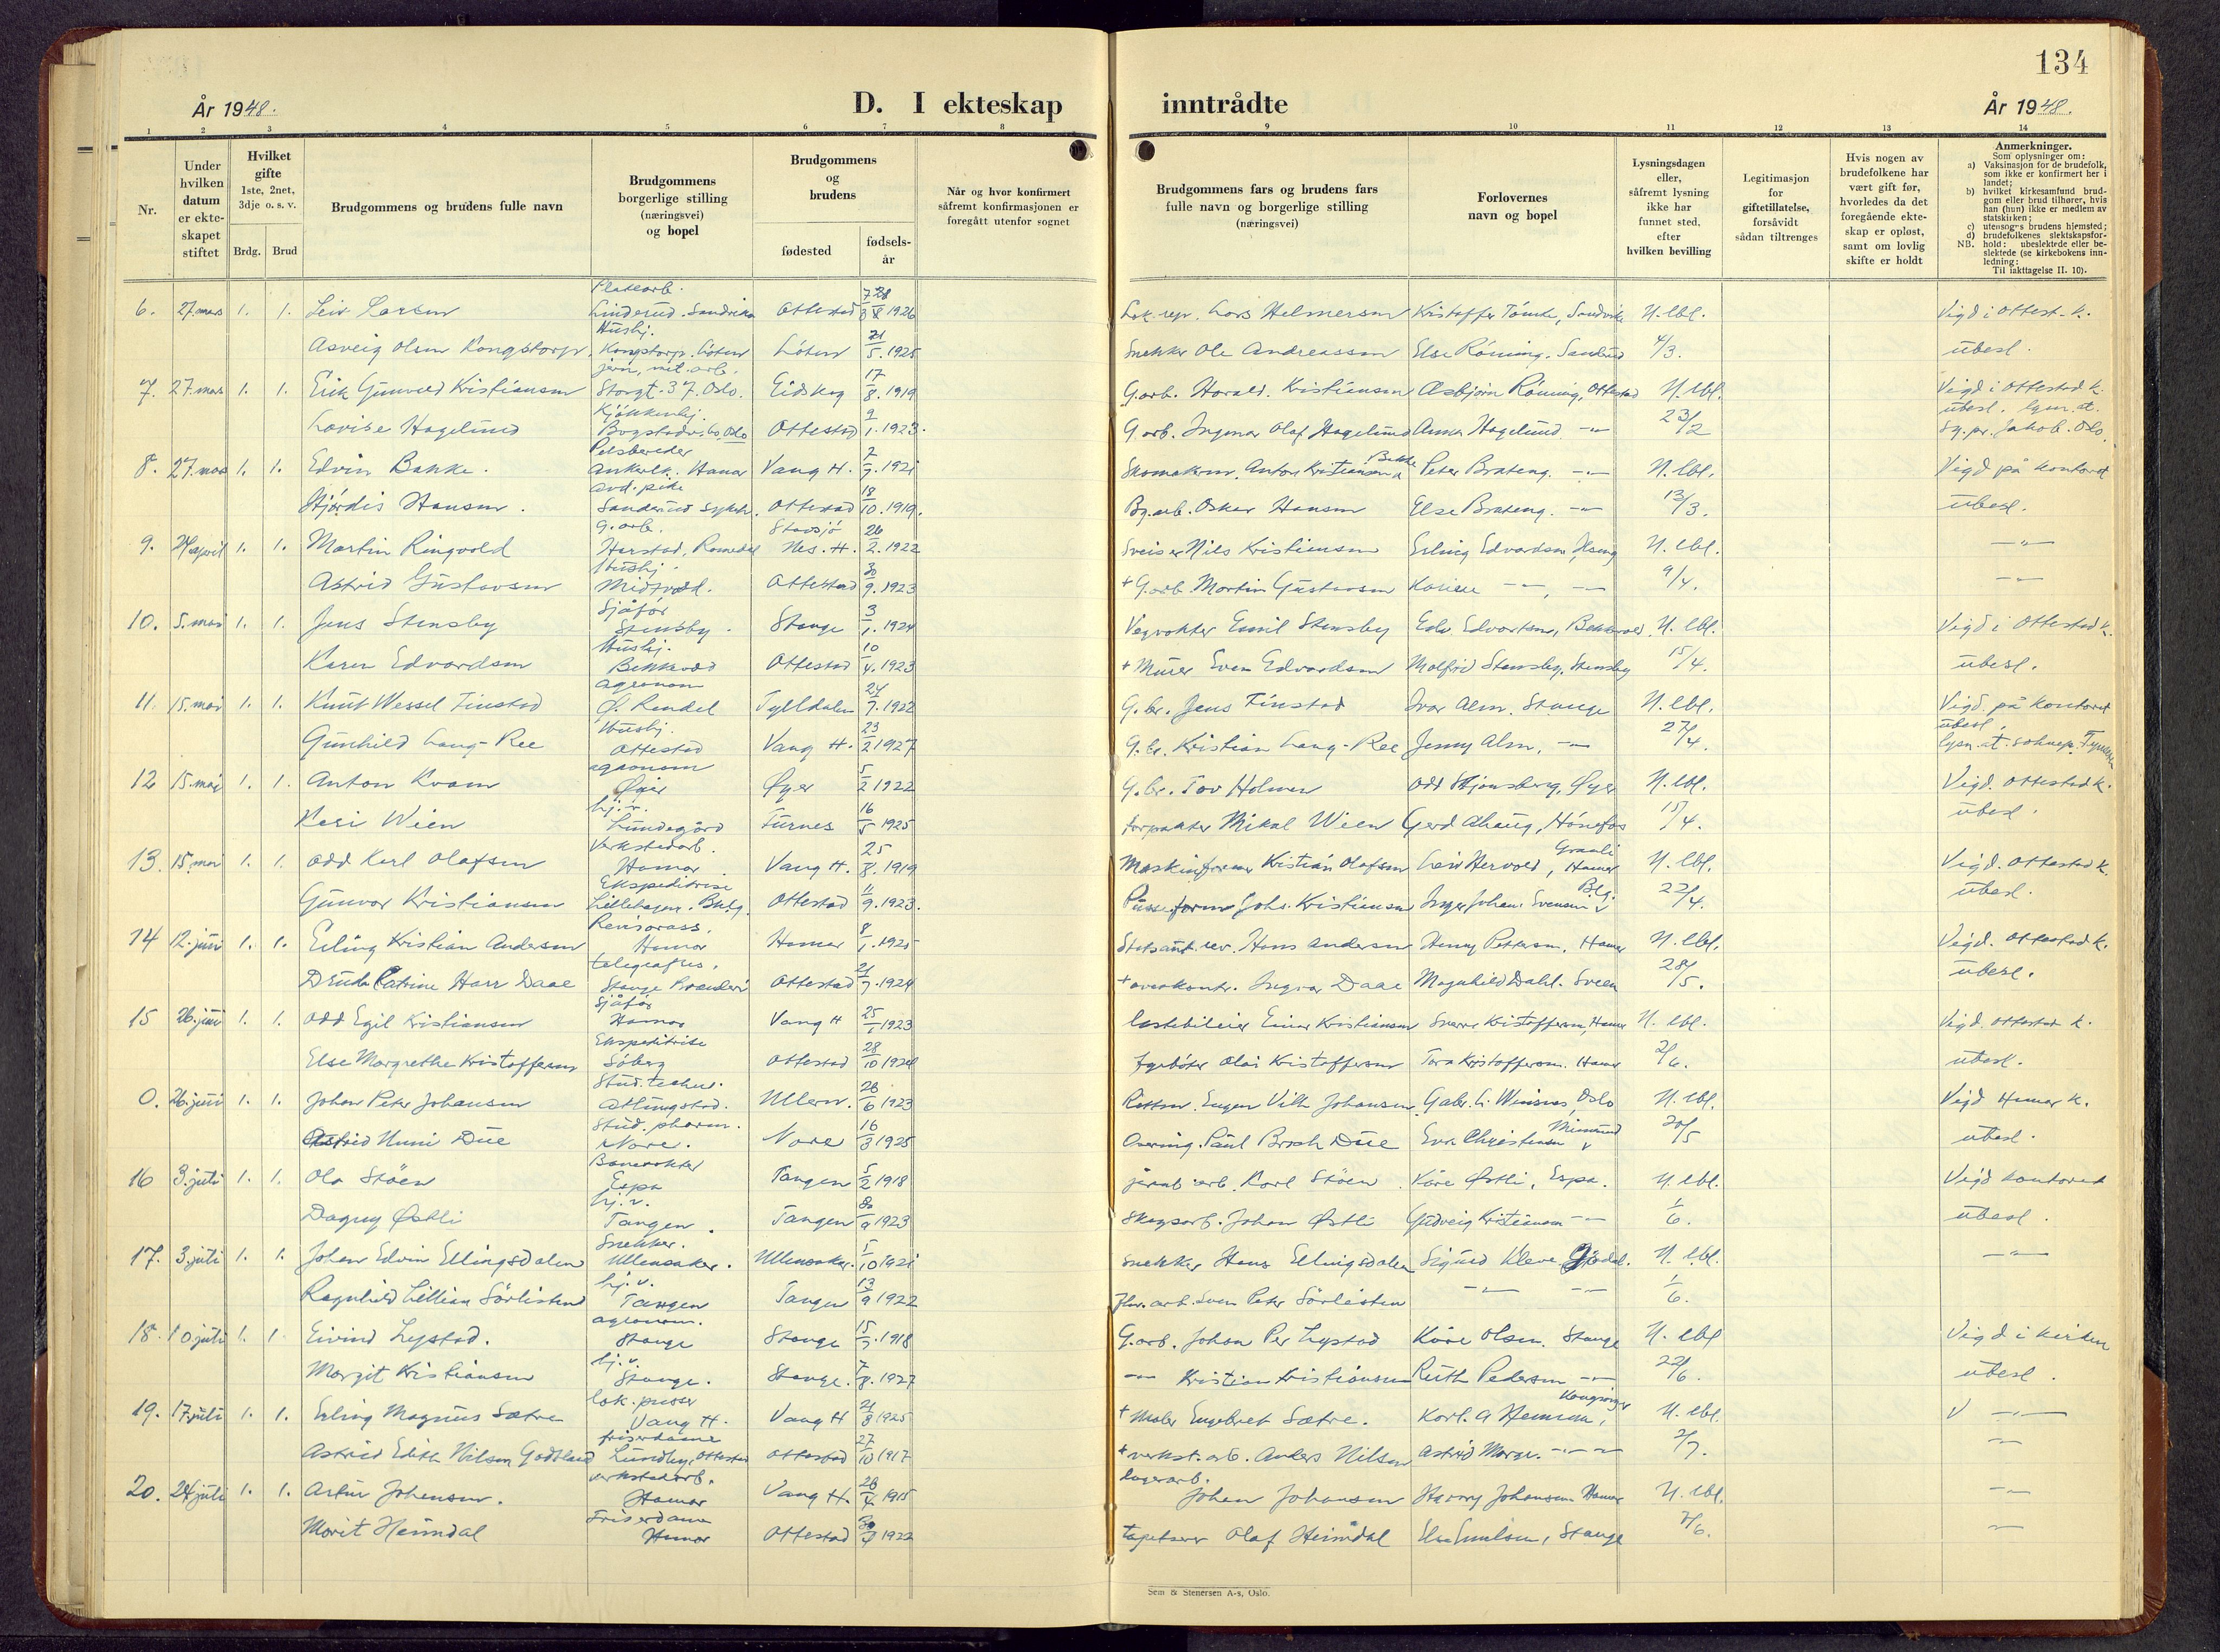 134
År 1948.
D. I ekteskap inntrådte
År 1948.
1 2 3 4 5 6 7 8 9 10 11 12 13 14
Nr.
Under hvilken datum er ekte-skapet stiftet
Hvilket gifte 1ste, 2net, 3dje o. s. v.
Brdg. Brud
Brudgommens og brudens fulle navn
Brudgommens borgerlige stilling (næringsvei) og bopel
Brudgommens og brudens
fødested
fødsels-år
Når og hvor konfirmert såfremt konfirmasjonen er foregått utenfor sognet
Brudgommens fars og brudens fars fulle navn og borgerlige stilling (næringsvei)
Forlovernes navn og bopel
Lysningsdagen eller, såfremt lysning ikke har funnet sted, efter hvilken bevilling
Legitimasjon for giftetillatelse, forsåvidt sådan tiltrenges
Hvis nogen av brudefolkene har vært gift før, hvorledes da det foregående ekte-skap er opløst, samt om lovlig skifte er holdt
Anmerkninger.
Som oplysninger om:
a) Vaksinasjon for de brudefolk, som ikke er konfirmert her i landet;
b) hvilket kirkesamfund brud-gom eller brud tilhører, hvis han (hun) ikke er medlem av statskirken;
c) utensogns brudens hjemsted;
d) brudefolkenes slektskapsfor-
NB. hold: ubeslektede eller be-slektede (se kirkebokens inn-ledning:
Til iakttagelse II. 10).
6. 27. mars 1. 1. Leiv Larsen Linderud. Sandvika Ottestad 1926 Lars Helmersen Kristoffer Tomter, Sandvika N. lbl. Vigd i Ottest. k.
Hushj.
Asveig Olsen Kongstorp. Kongstorp. Löten Löten 21/5. 1925 Snekker Ole Andreassen Else Röning. 4/3. ubesl.
7. 27. mars 1. 1. Erik Gunvald Kristiansen Storgt. 37. Oslo. Eidskog 17/8. 1919 G.arb. Harald. Kristiansen Asbjörn Röning, Ottestad N. lbl. Vigd i Ottestad k.
ubesl. lysn. at.
Kjökkenhj.
Lovise Hagelund Ottestad 9/1. 1923. G. arb. Ingmar Olaf Hagelund Anna Hagelund -"- 23/2 Jakob. Oslo.
Pelsbereder
8. 27. mars 1. 1. Edvin Bakke. Ankerlk. Hamar Vang H. 1921 Skomakerm. Anton Kristiansen Bakke Peter Brateng. -"- N. lbl. Vigd på kontoret
Hjördis Hansen. Sanderud sykeh. Ottestad 18/10. 1919. Bg. arb. Oskar Hansen Else Brateng. -"- 13/3. ubesl.
G. arb. Stavsjö
9. 24 april 1. 1. Martin Ringvold Harstad, Romedal Nes. H. 26/2. 1922 Sveiser Nils Kristiansen Erling Edvardsen N. lbl. -"-
Hushj.
Astrid Gustavsen Ottestad 30/9. 1923 + G.arb. Martin Gustavsen -"- -"- 9/4. -"-
Sjåför
10. 5. mai 1. 1. Jens Stensby Stensby. Stange 3/1. 1924 Vegvokter Emil Stensby Edv. Edvardsen, Bekkevold N. lbl. Vigd i Ottestad k.
Hushj.
Karen Edvardsen Bekkvold Ottestad 10/4. 1923 + Murer Even Edvardsen Molfrid Stensby. Stensby 15/4. ubesl.
Agronom
11. 15. mai 1. 1. Knut Wessel Finstad Ø. Rendal Tylldalen 24/7. 1922 G. br. Jens Finstad Ivar Alm. Stange N. lbl. Vigd. på kontoret
ubesl.
Hushj.
Gunhild Lang-Ree Ottestad Vang H. 23/2 1927 G. br. Kristian Lang-Ree Jenny Alm, -"- 27/4. lysn. at. soknepr. Tynset
agronom
12 15. mai 1. 1. Anton Kvam Øyer Øyer 5/2 1922 G. br. Tov Holmen Odd Stjønsberg, Øyer N. lbl. Vigd. Ottestad k.
hj. v.
Kari Wien Lundegård Furnes 16/5 1925 forpakter Mikal Wien Gerd Ahaug, Hönefos 15/4. ubesl.
Verkstedarb.
13. 15. mai 1. 1. Odd Karl Olafsen Hamar Vang H. 25/8. 1919 Kristian Olafsen Leiv Hervold, Hamar N. lbl. Vigd. Ottestad k.
Ekspeditrise
Gunvor Kristiansen Lillehagen. Ottestad 11/9. 1923. Johs. Kristiansen Inger Johan. Svensen 22/4. ubesl.
Revisorass.
14 12. juni 1. 1. Erling Kristian Andersen Hamar Hamar 8/1. 1921 Statsaut. rev. Hans Andersen Henny Pettersen. Hamar N. lbl. Vigd. Ottestad k.
telegrafis.
Drude Catrine Harr Daae Stange Brenderi Ottestad 21/7. 1924 + overkontr. Ingvar Daae Magnhild Dahl. Sveen 28/5. ubesl.
Sjåför
15 26. juni 1. 1. Odd Egil Kristiansen Hamar Vang H 25/1 1923 lastebileier Einar Kristiansen Sverre Kristoffersen, Hamar N. lbl. Vigd. Ottestad k.
Ekspeditrise
Else Margrethe Kristoffersen Söberg Ottestad 28/10 1924 Olai Kristoffersen Tora Kristoffersen. Hamar 2/6. ubesl.
Stud. techn.
0. 26. juni 1. 1. Johan Peter Johansen Attungstad. Ullern. 26/6 1923 Eugen Vilh. Johansen Gabr. L. Winsnes, Oslo N. lbl. Vigd Hamar k.
Stud. pharm.
Astrid Unni Due Nore. Nore 16/3 1925 Overing. Paul Broch Due Eva Christensen 20/5 ubesl.
Banevokter
16 3. juli 1. 1. Ola Stöen Espa Tangen 5/2 1918 jernb. arb. Karl Stöen Kåre Østli, Espa. N. lbl. Vigd kontoret
hj. v.
Dagny Østli Tangen. Tangen 1923 Skogsarb. Johan Østli Gudveig Kristiansen -"- 1/6. ubesl.
Snekker.
17. 3. juli 1. 1. Johan Edvin Ellingsdalen Ullensaker. Ullensaker. 1921 snekker Hans Ellingsdalen Sigurd Kleve N. lbl. -"-
hj. v.
Ragnhild Lillian Sörlisten Tangen Tangen 13/9 1922 Sven Peter Sörlisten -"- -"- 1/6.
agronom.
18. 10. juli 1. 1. Eivind Lystad. Stange Stange 15/7. 1918 G.arb. Johan Per Lystad Kåre Olsen. Stange N. lbl Vigd i kirken
hj. v.
Margit Kristiansen Stange. Stange. 7/8. 1927 -"- Kristian Kristiansen Ruth Pedersen -"- 22/6. ubesl.
lok. pusser
19. 17. juli 1. 1. Erling Magnus Sætre Vang H. Vang H 21/8 1925 + Maler Engebret Sætre. Karl. A Hemsen, Kongsvinger N. lbl. V -"-
friserdame
Astrid Edith Nilsen Godtland Lundby, Ottestad Ottestad 27/10 1917 + verkst. arb. Anders Nilsen Astrid -"- 2/7. -"-
verkstedarb. lagerarb.
20. 24 juli 1. 1. Artur Johansen. Hamar Vang H. 26/4. 1915 Johan Johansen Harry Johansen Hamar N. lbl. -"-
Friserdame
Marit Heimdal Hamar Ottestad 1922 tapetserer Olaf Heimdal Else Emilsen, Stange -"-
Sem & Stenersen A-s, Oslo.